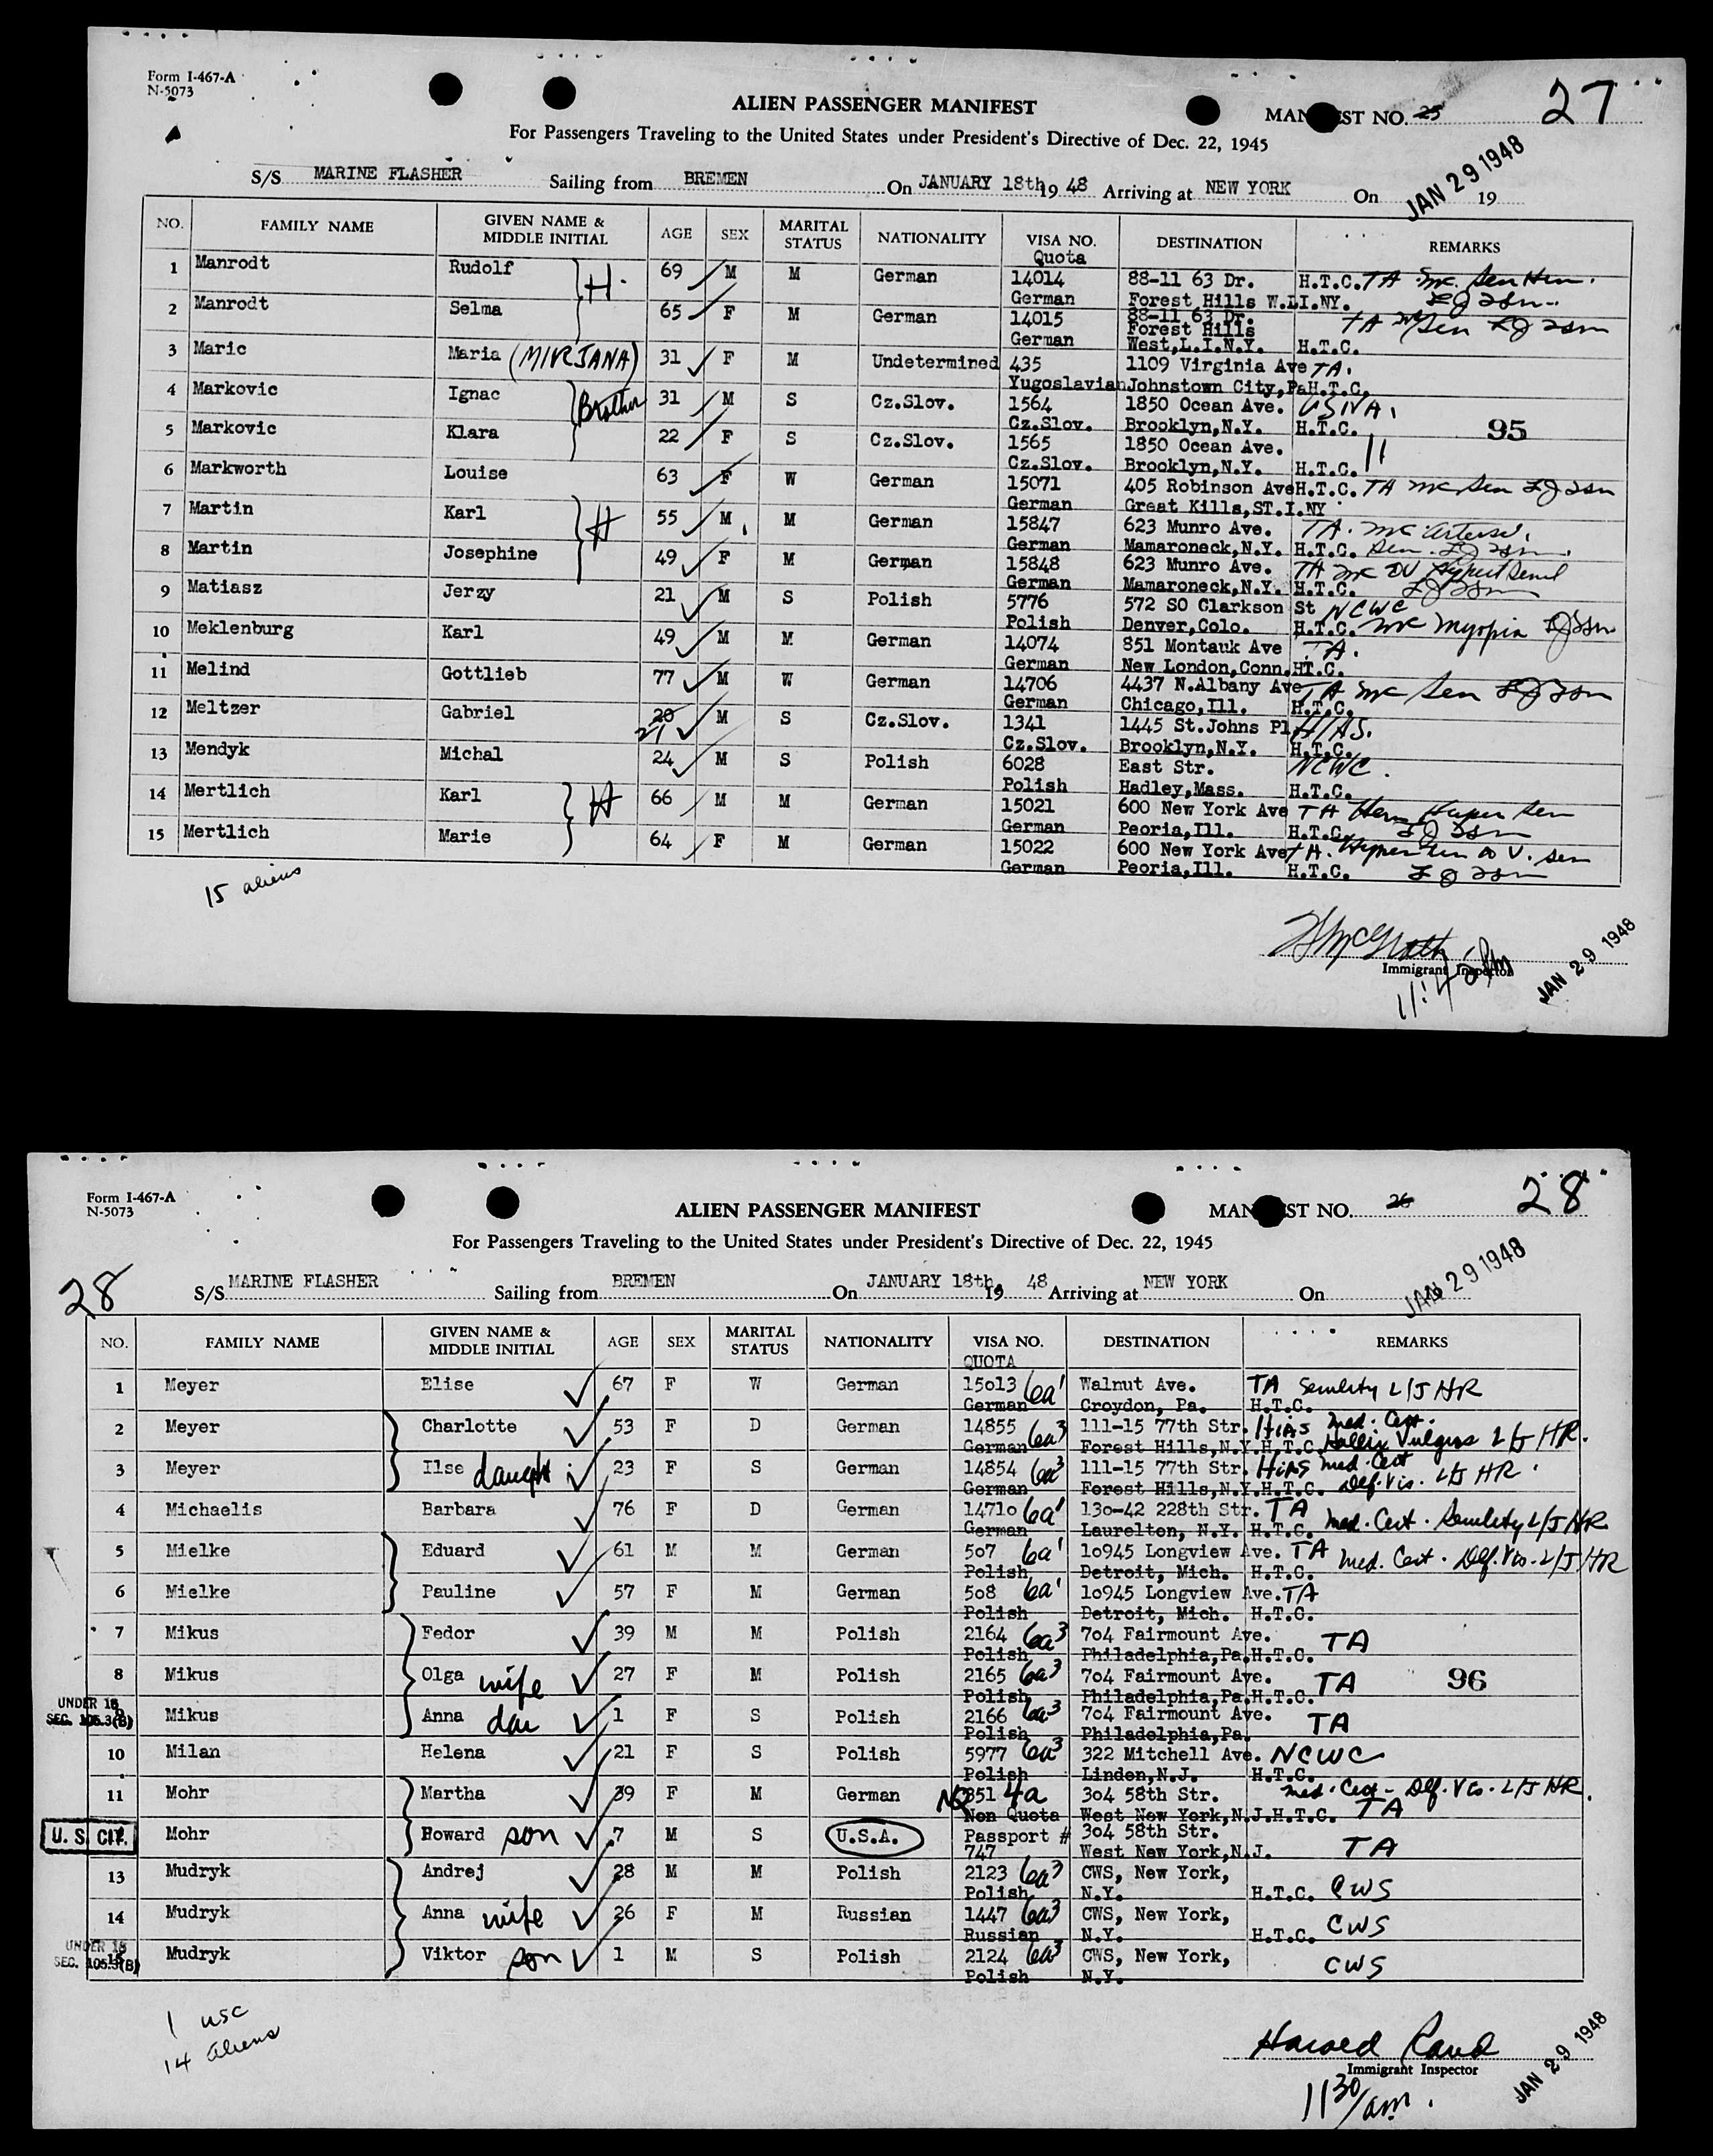 Form I-467-A
N-5073
ALIEN PASSENGER MANIFEST
MAN ST NO. 25 27
For Passengers Traveling to the United States under President's Directive of Dec. 22, 1945
JAN 29 1948
S/S MARINE FLASHER Sailing from BREMEN On JANUARY 18th 19 48 Arriving at NEW YORK On 19
NO. FAMILY NAME GIVEN NAME & MIDDLE INITIAL AGE SEX MARITAL STATUS NATIONALITY VISA NO. Quota DESTINATION REMARKS
1 Manrodt Rudolf H. 69 M M German 14014 88-11 63 Dr. H.T.C. TA
German Forest Hills W.L.I.NY.
2 Manrodt Selma 65 F M German 14015 88-11 63 Dr. TA
Forest Hills
German West, L.I.N.Y. H.T.C.
3 Maric Maria (MIRJANA) 31 F M Undetermined 435 1109 Virginia Ave TA.
Yugoslavian Johnstown City, Pa H.T.C.
4 Markovic Ignac Brother 31 M S Cz.Slov. 1564 1850 Ocean Ave. USNA.
Cz.Slov. Brooklyn, N.Y. H.T.C. 95
5 Markovic Klara 22 F S Cz.Slov. 1565 1850 Ocean Ave. 11
Cz.Slov. Brooklyn, N.Y. H.T.C.
6 Markworth Louise 63 F W German 15071 405 Robinson Ave H.T.C. TA
German Great Kills, ST.I.NY
7 Martin Karl H 55 M M German 15847 623 Munro Ave. TA.
German Mamaroneck, N.Y. H.T.C.
8 Martin Josephine 49 F M German 15848 623 Munro Ave. TA
German Mamaroneck, N.Y. H.T.C.
9 Matiasz Jerzy 21 M S Polish 5776 572 SO Clarkson St NCWC
Polish Denver, Colo. H.T.C. myopia
10 Meklenburg Karl 49 M M German 14074 851 Montauk Ave TA.
German New London, Conn. HT.C.
11 Melind Gottlieb 77 M W German 14706 4437 N.Albany Ave TA
German Chicago, Ill. H.T.C.
12 Meltzer Gabriel 20 21 M S Cz.Slov. 1341 1445 St.Johns Pl HIAS.
Cz.Slov. Brooklyn, N.Y. H.T.C.
13 Mendyk Michal 24 M S Polish 6028 East Str. NCWC.
Polish Hadley, Mass. H.T.C.
14 Mertlich Karl H 66 M M German 15021 600 New York Ave TA
German Peoria, Ill. H.T.C.
15 Mertlich Marie 64 F M German 15022 600 New York Ave
German Peoria, Ill. H.T.C.
15 aliens
Immigrant Inspector
JAN 29 1948
Form I-467-A
N-5073
ALIEN PASSENGER MANIFEST
MAN ST NO. 26 28
For Passengers Traveling to the United States under President's Directive of Dec. 22, 1945
28
JAN 29 1948
S/S MARINE FLASHER Sailing from BREMEN On JANUARY 18th, 19 48 Arriving at NEW YORK On
NO. FAMILY NAME GIVEN NAME & MIDDLE INITIAL AGE SEX MARITAL STATUS NATIONALITY VISA NO. QUOTA DESTINATION REMARKS
1 Meyer Elise 67 F W German 15013 6a1 Walnut Ave. TA Senility L/J HR
German Croydon, Pa. H.T.C.
2 Meyer Charlotte 53 F D German 14855 6a3 111-15 77th Str. HIAS Med. Cert.
German Forest Hills, N.Y. H.T.C. L/J HR.
3 Meyer Ilse daught 23 F S German 14854 6a3 111-15 77th Str. HIAS Med. Cert
German Forest Hills, N.Y. H.T.C. Def. Vis. L/J HR.
4 Michaelis Barbara 76 F D German 14710 6a1 130-42 228th Str. TA
German Laurelton, N.Y. H.T.C. Med. Cert. Senility L/J HR
5 Mielke Eduard 61 M M German 507 6a1 10945 Longview Ave. TA Med. Cert. Def. Vis. L/J HR
Polish Detroit, Mich. H.T.C.
6 Mielke Pauline 57 F M German 508 6a1 10945 Longview Ave. TA
Polish Detroit, Mich. H.T.C.
7 Mikus Fedor 39 M M Polish 2164 6a3 704 Fairmount Ave. TA
Polish Philadelphia, Pa. H.T.C.
8 Mikus Olga wife 27 F M Polish 2165 6a3 704 Fairmount Ave. TA 96
Polish Philadelphia, Pa. H.T.C.
UNDER 16
SEC. 105.3(B) Mikus Anna dau 1 F S Polish 2166 6a3 704 Fairmount Ave. TA
Polish Philadelphia, Pa.
10 Milan Helena 21 F S Polish 5977 6a3 322 Mitchell Ave. NCWC
Polish Linden, N.J. H.T.C.
11 Mohr Martha 39 F M German NQ 851 4a 304 58th Str. Med. Cert - Def. Vis. L/J HR.
Non Quota West New York, N.J. H.T.C. TA
U. S. CIT. Mohr Howard son 7 M S U.S.A. Passport # 304 58th Str. TA
747 West New York, N.J.
13 Mudryk Andrej 28 M M Polish 2123 6a3 CWS, New York,
Polish N.Y. H.T.C. CWS
14 Mudryk Anna wife 26 F M Russian 1447 6a3 CWS, New York,
Russian N.Y. H.T.C. CWS
UNDER 16
SEC. 105.3(B) 15 Mudryk Viktor son 1 M S Polish 2124 6a3 CWS, New York, CWS
Polish N.Y.
1 USC
14 aliens
Harold Rand
Immigrant Inspector
1130/am.
JAN 29 1948